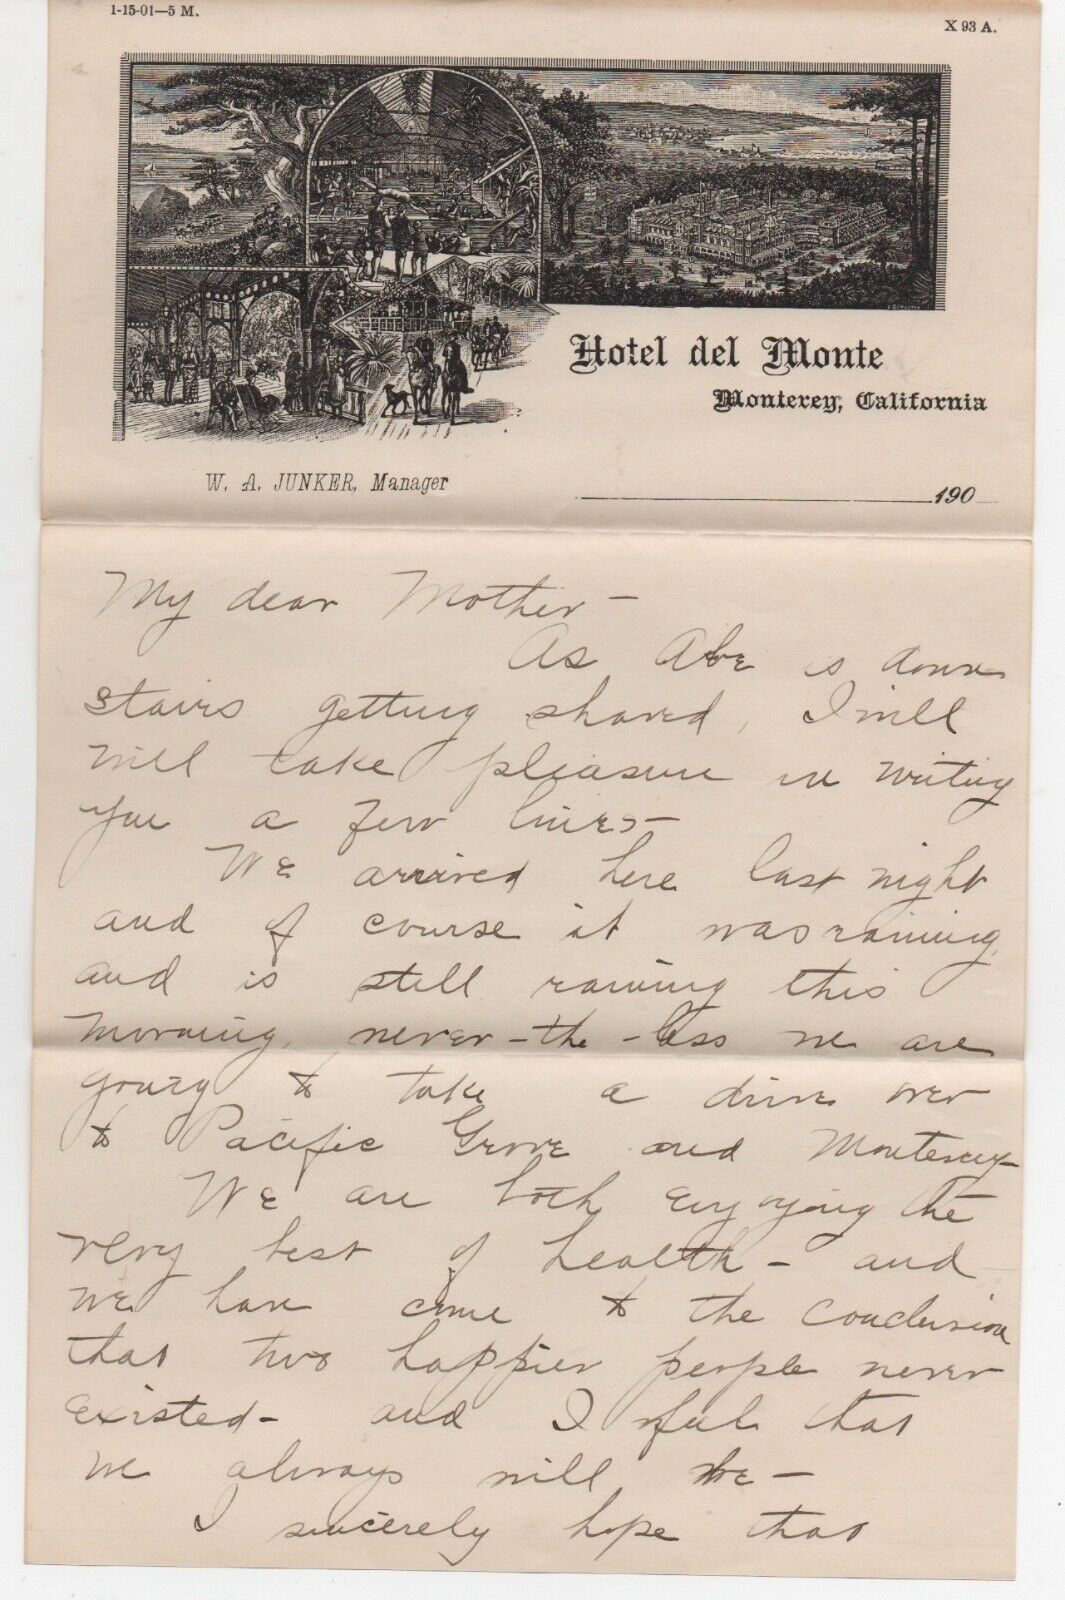 1-15-01—5 M.
X 93 A.
Hotel del Monte
Monterey, California
W. A. JUNKER, Manager
190
My dear Mother –
As Abe is down
stairs getting shaved, I will
will take pleasure in writing
you a few lines –
We arrived here last night
and of course it was raining,
and is still raining this
morning, never-the-less we are
going to take a drive over
to Pacific Grove and Monterey –
We are both enjoying the
very best of health – and
we have come to the conclusion
that two happier people never
existed – and I feel that
we always will be –
I sincerely hope that